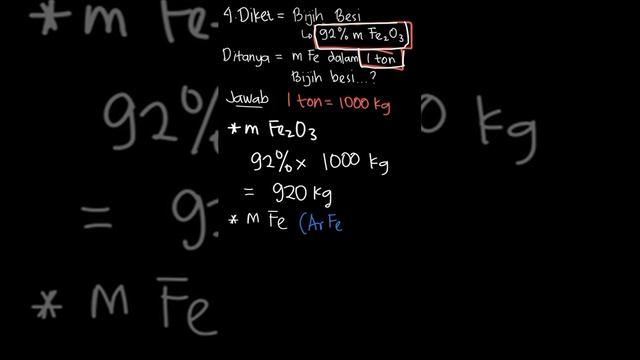 4. Diket = Bijih Besi
↳ 92% m Fe₂O₃
Ditanya = m Fe dalam 1 ton
Bijih besi...?
Jawab 1 ton = 1000 kg
* m Fe₂O₃
92% x 1000 kg
= 920 kg
* m Fe (Ar Fe